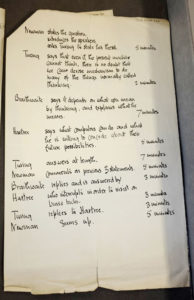 Newman states the question,
introduces the speakers
asks Turing to state his thesis. 5 minutes
Turing says that even if the present machine
cannot think, there is no doubt that
we can devise mechanisms to do
many of the things normally called
thinking. 5 minutes
Braithwaite says it depends on what you mean
by thinking, and explains what he
means. 7 minutes
Hartree says what computers can do and what
he is willing to concede about their
future possibilities. 5 minutes
Turing answers at length. 7 minutes
Newman comments on previous statements. 5 minutes
Braithwaite replies and is answered by 3 minutes
Hartree who interrupts in order to insist on
3 minutes
Turing replies to Hartree. 3 minutes
Newman Sums up. 5 minutes